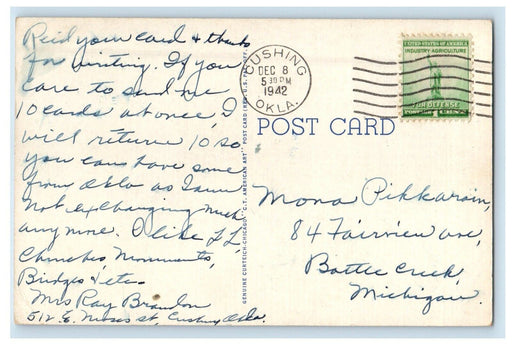 Reid your card & thanks
for writing. If you
care to send me
10 cards at once, I
will return 10 so
you can have some
from Okla as I am
not exchanging much
anymore. I like LL,
Churches Monuments,
Bridges & etc.
Mrs Ray Brandon
512 E. Moses st, Cushing Okla.
GENUINE CURTEICH-CHICAGO "C.T. AMERICAN ART" POST CARD (REG. U.S. PAT. OFF.)
CUSHING
DEC 8
5 30 PM
1942
OKLA.
UNITED STATES OF AMERICA
INDUSTRY AGRICULTURE
FOR DEFENSE
POST CARD
Mona Pikkarain,
84 Fairview ave,
Battle Creek,
Michigan.